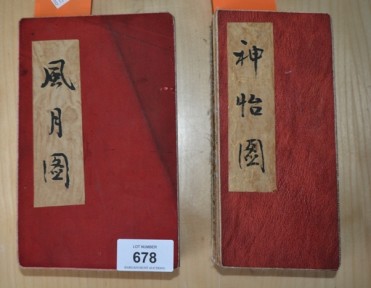 風月圖
神怡圖
LOT NUMBER
678